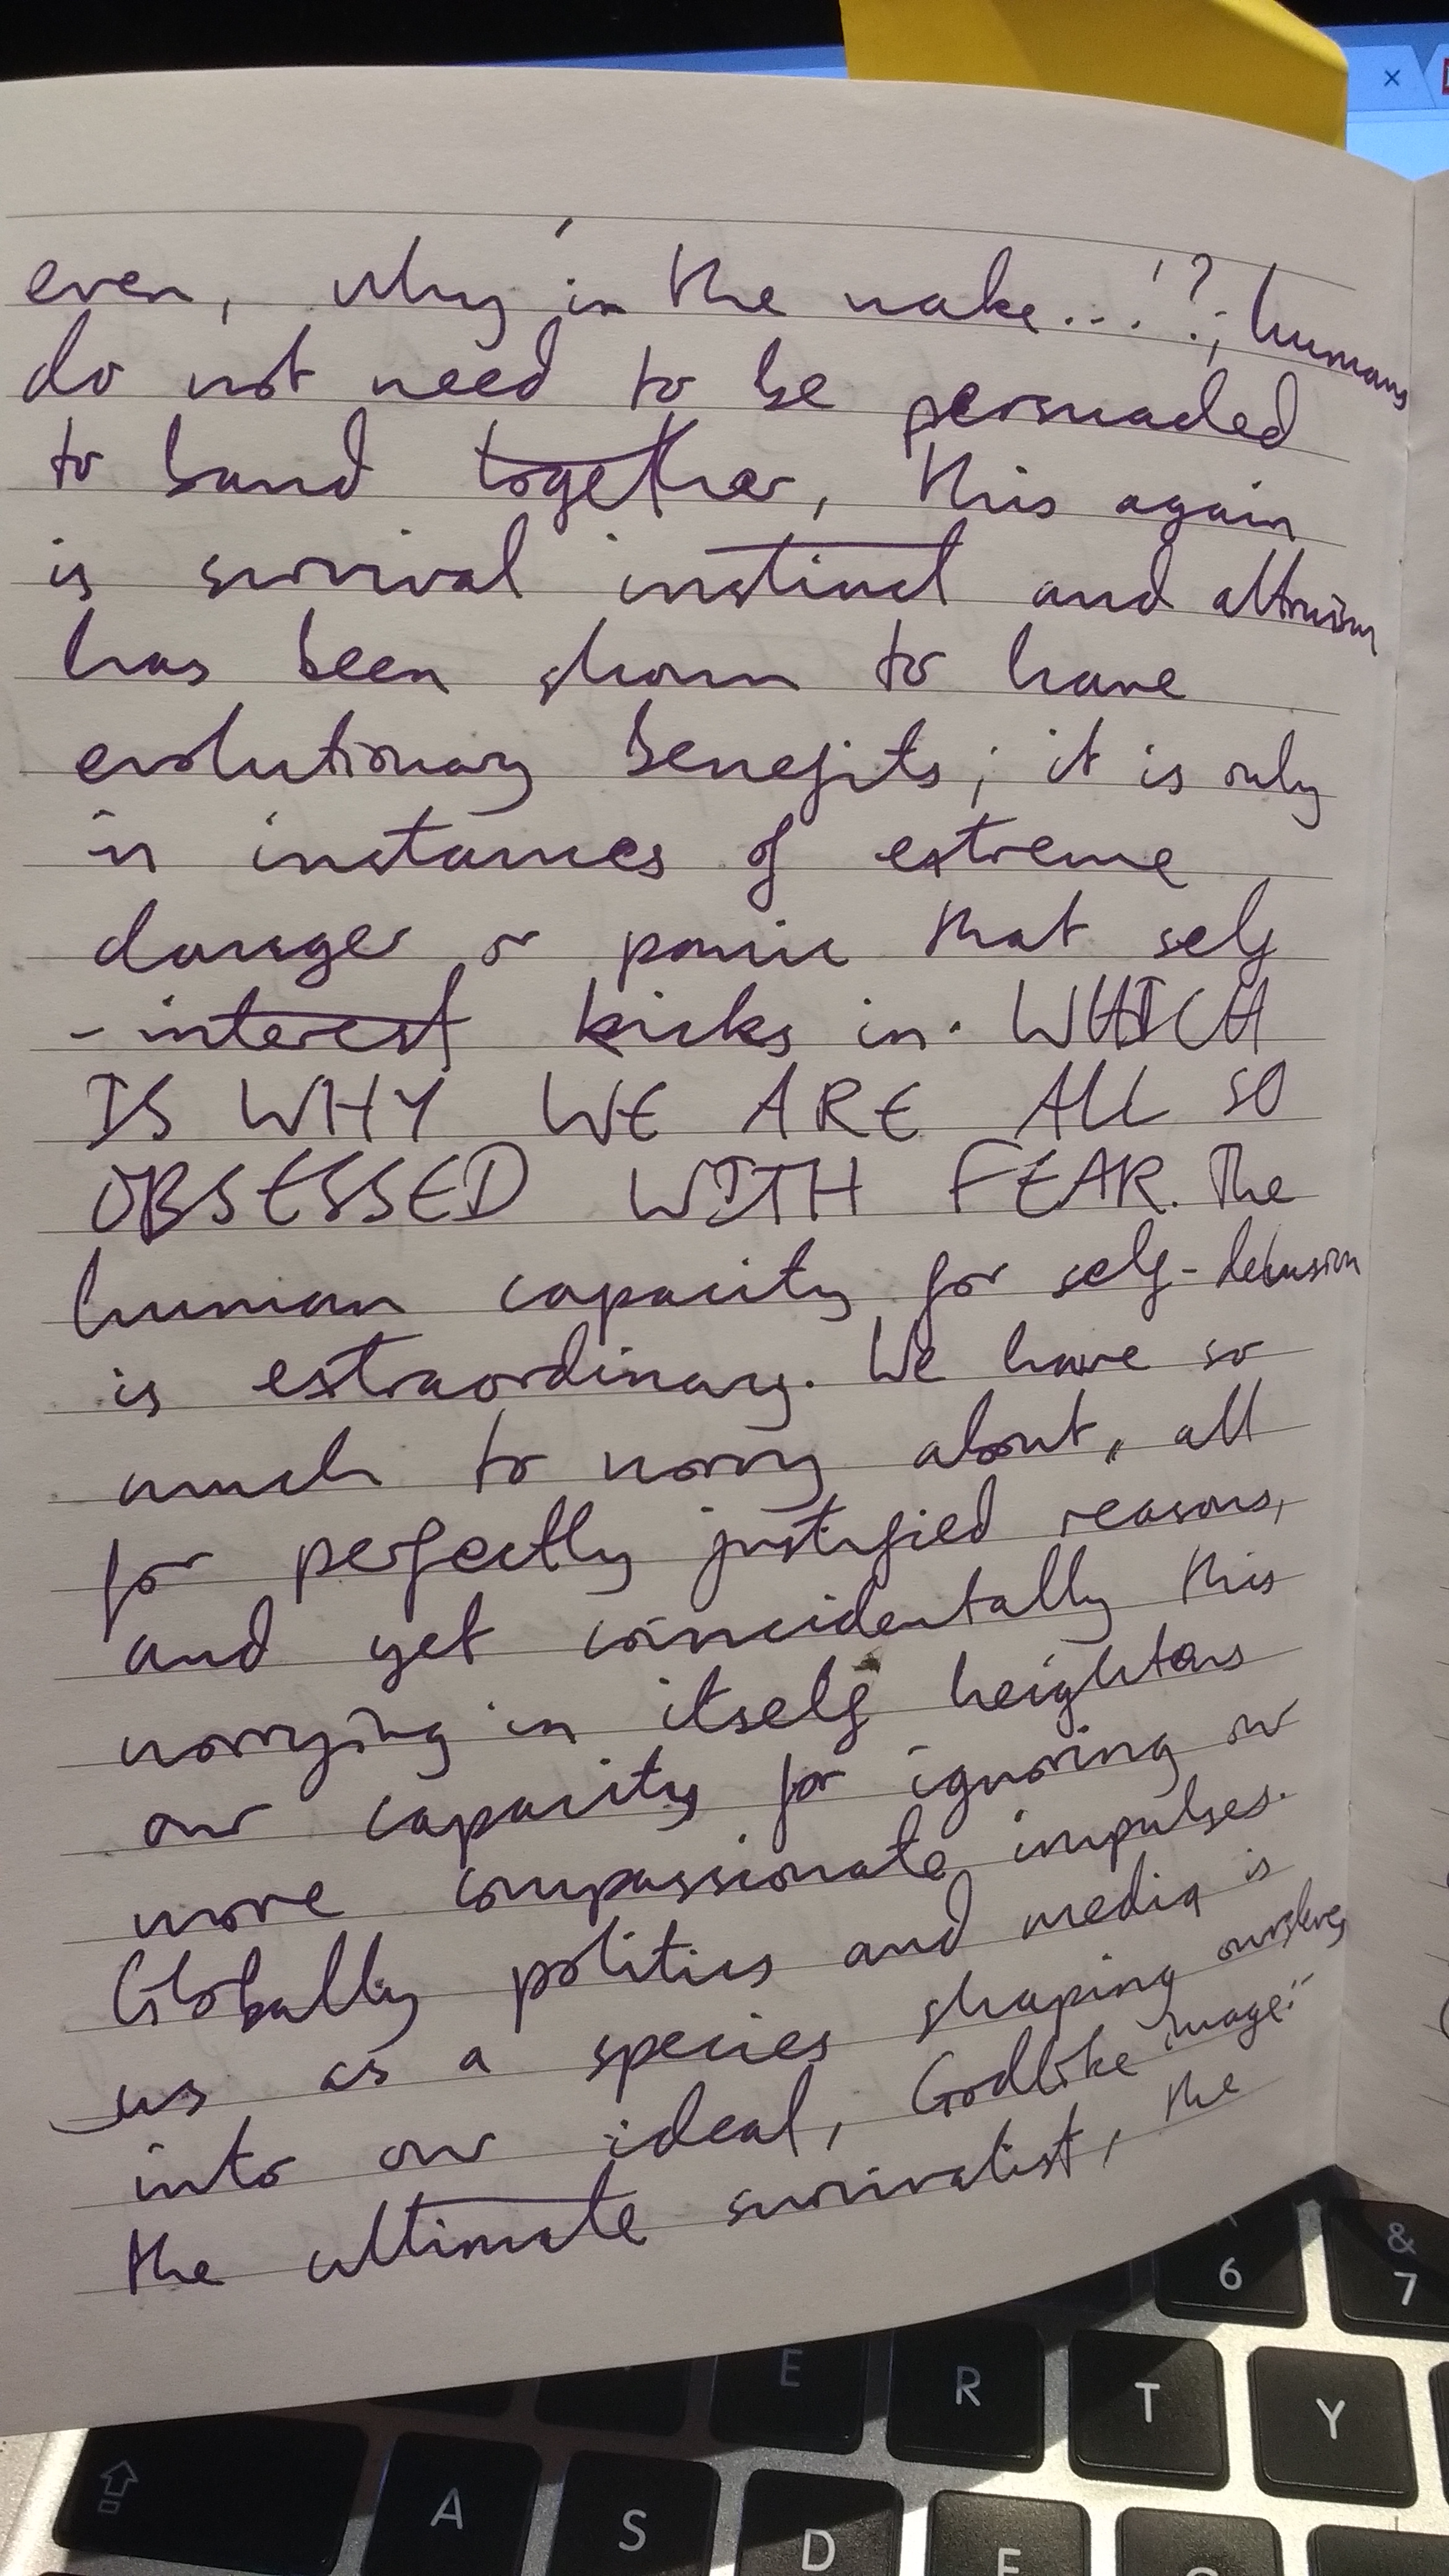 even, 'why in the wake...'?; humans
do not need to be persuaded
to band together, this again
is survival instinct and altruism
has been shown to have
evolutionary benefits; it is only
in instances of extreme
danger or panic that self
-interest kicks in. WHICH
IS WHY WE ARE ALL SO
OBSESSED WITH FEAR. The
human capacity for self-delusion
is extraordinary. We have so
much to worry about, all
for perfectly justified reasons,
and yet coincidentally this
worrying in itself heightens
our capacity for ignoring our
more compassionate impulses.
Globally politics and media is
us as a species shaping ourselves
into our ideal, Godlike image:
the ultimate survivalist, the
6
&
7
E
R
T
Y
A
S
D
F